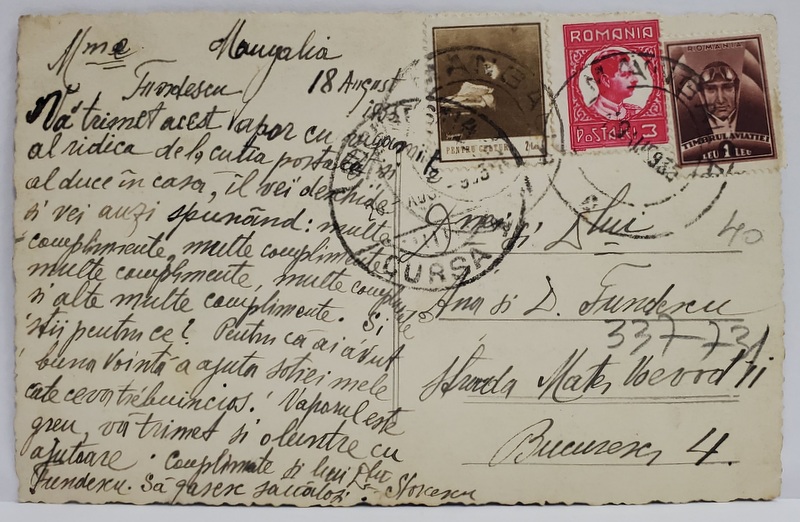 Mme Mangalia
Fundescu 18 August
Vă trimet acest vapor cu
al ridica dela cutia postală
al duce in casă, il vei deschide
si vei auzi spunând: multe
complimente, multe complimente
multe complimente, multe complimente
si alte multe complimente. Si
stii pentru ce? Pentru că ai avut
buna voință a ajuta sotiei mele
cate ceva trebuincios. Vaporul este
greu, vă trimet si o luntre cu
ajutoare. Complimente si lui Dlui
Fundescu. Să găsesc Stoicescu
PENTRU
ROMANIA
POSTA 3
ROMANIA
TIMBRUL AVIATIEI
LEU 1 LEU
CURSA
Dnei si Dlui
40
Ana si D. Fundescu
337-731
Strada Matei Voevod 11
Bucuresti 4.